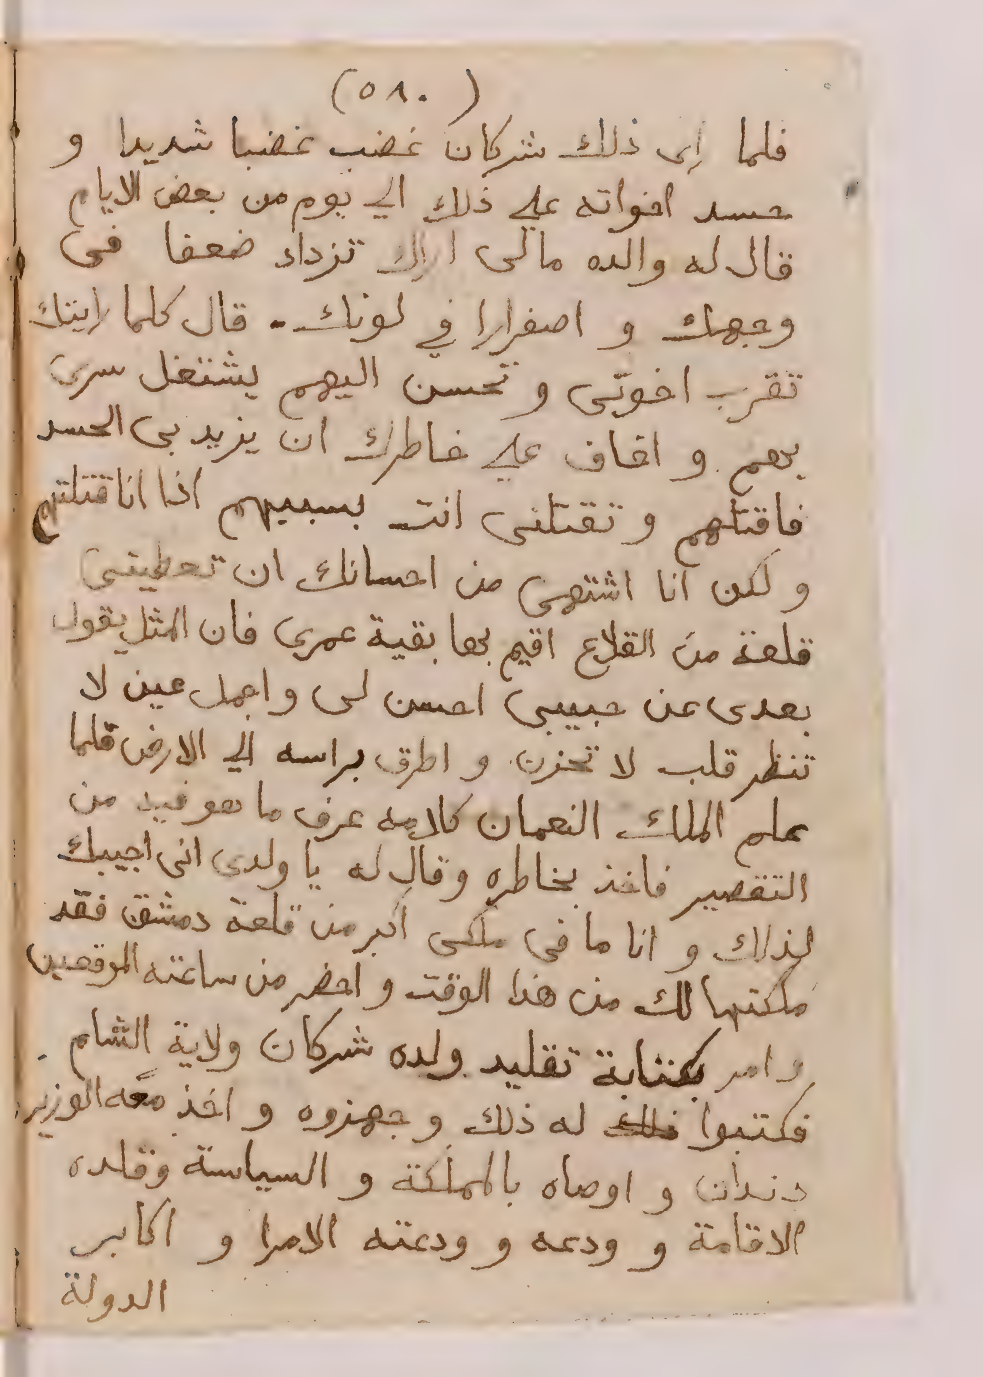 (٥٨٠)
فلما راى ذلك شركان غضب غضبا شديدا و
حسد اخواته علي ذلك الي يوم من بعض الايام
قال له والده مالى اراك تزداد ضعفا فى
وجهك و اصفرارا في لونك. قال كلما رايتك
تقرب اخوتى و تحسن اليهم يشتغل سرى
بهم و اخاف علي خاطرك ان يزيد بى الحسد
فاقتلهم و تقتلنى انت بسببهم اذا انا قتلتهم
و لكن انا اشتهى من احسانك ان تعطينى
قلعة من القلاع اقيم بها بقية عمرى فان المثل يقول
بعدى عن حبيبى احسن لى و اجمل عين لا
تنظر قلب لا تحزن و اطرق براسه الي الارض فلما
علم الملك النعمان كلامه عرف ما هو فيه من
التقصير فاخذ بخاطره وقال له يا ولدى انى اجيبك
لذلك و انا ما فى ملكى اكبر من قلعة دمشق فقد
ملكتها لك من هذا الوقت و احضر من ساعته الموقعين
و امر بكتابة تقليد ولده شركان ولاية الشام.
فكتبوا له ذلك و جهزوه و اخذ معه الوزير
دندان و اوصاه بالمملكة و السياسة وقلده
الاقامة و ودعه و ودعته الامرا و اكابر
الدولة